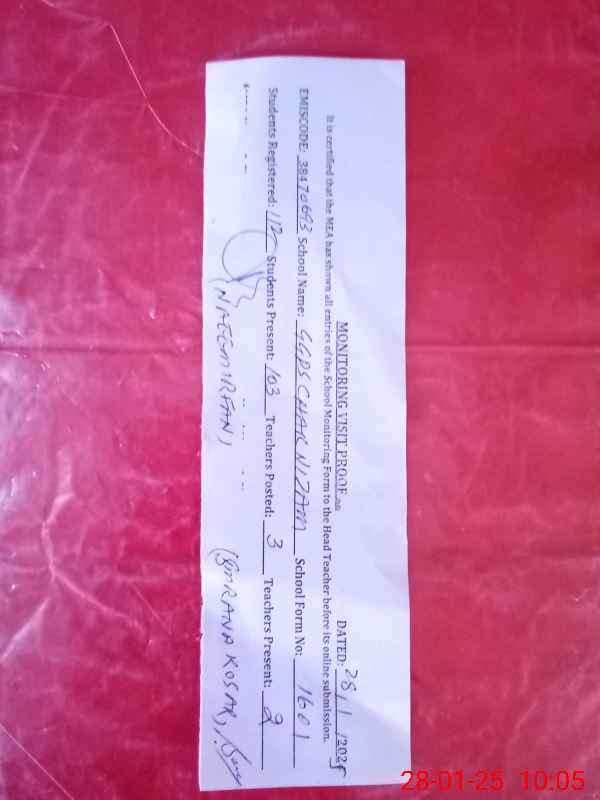 MONITORING VISIT PROOF
DATED: 28/1/2025
It is certified that the MEA has shown all entries of the School Monitoring Form to the Head Teacher before its online submission.
EMISCODE: 38470693 School Name: GGPS CHAK NIZAM School Form No: 1601
Students Registered: 112 Students Present: 103 Teachers Posted: 3 Teachers Present: 2
28-01-25 10:05